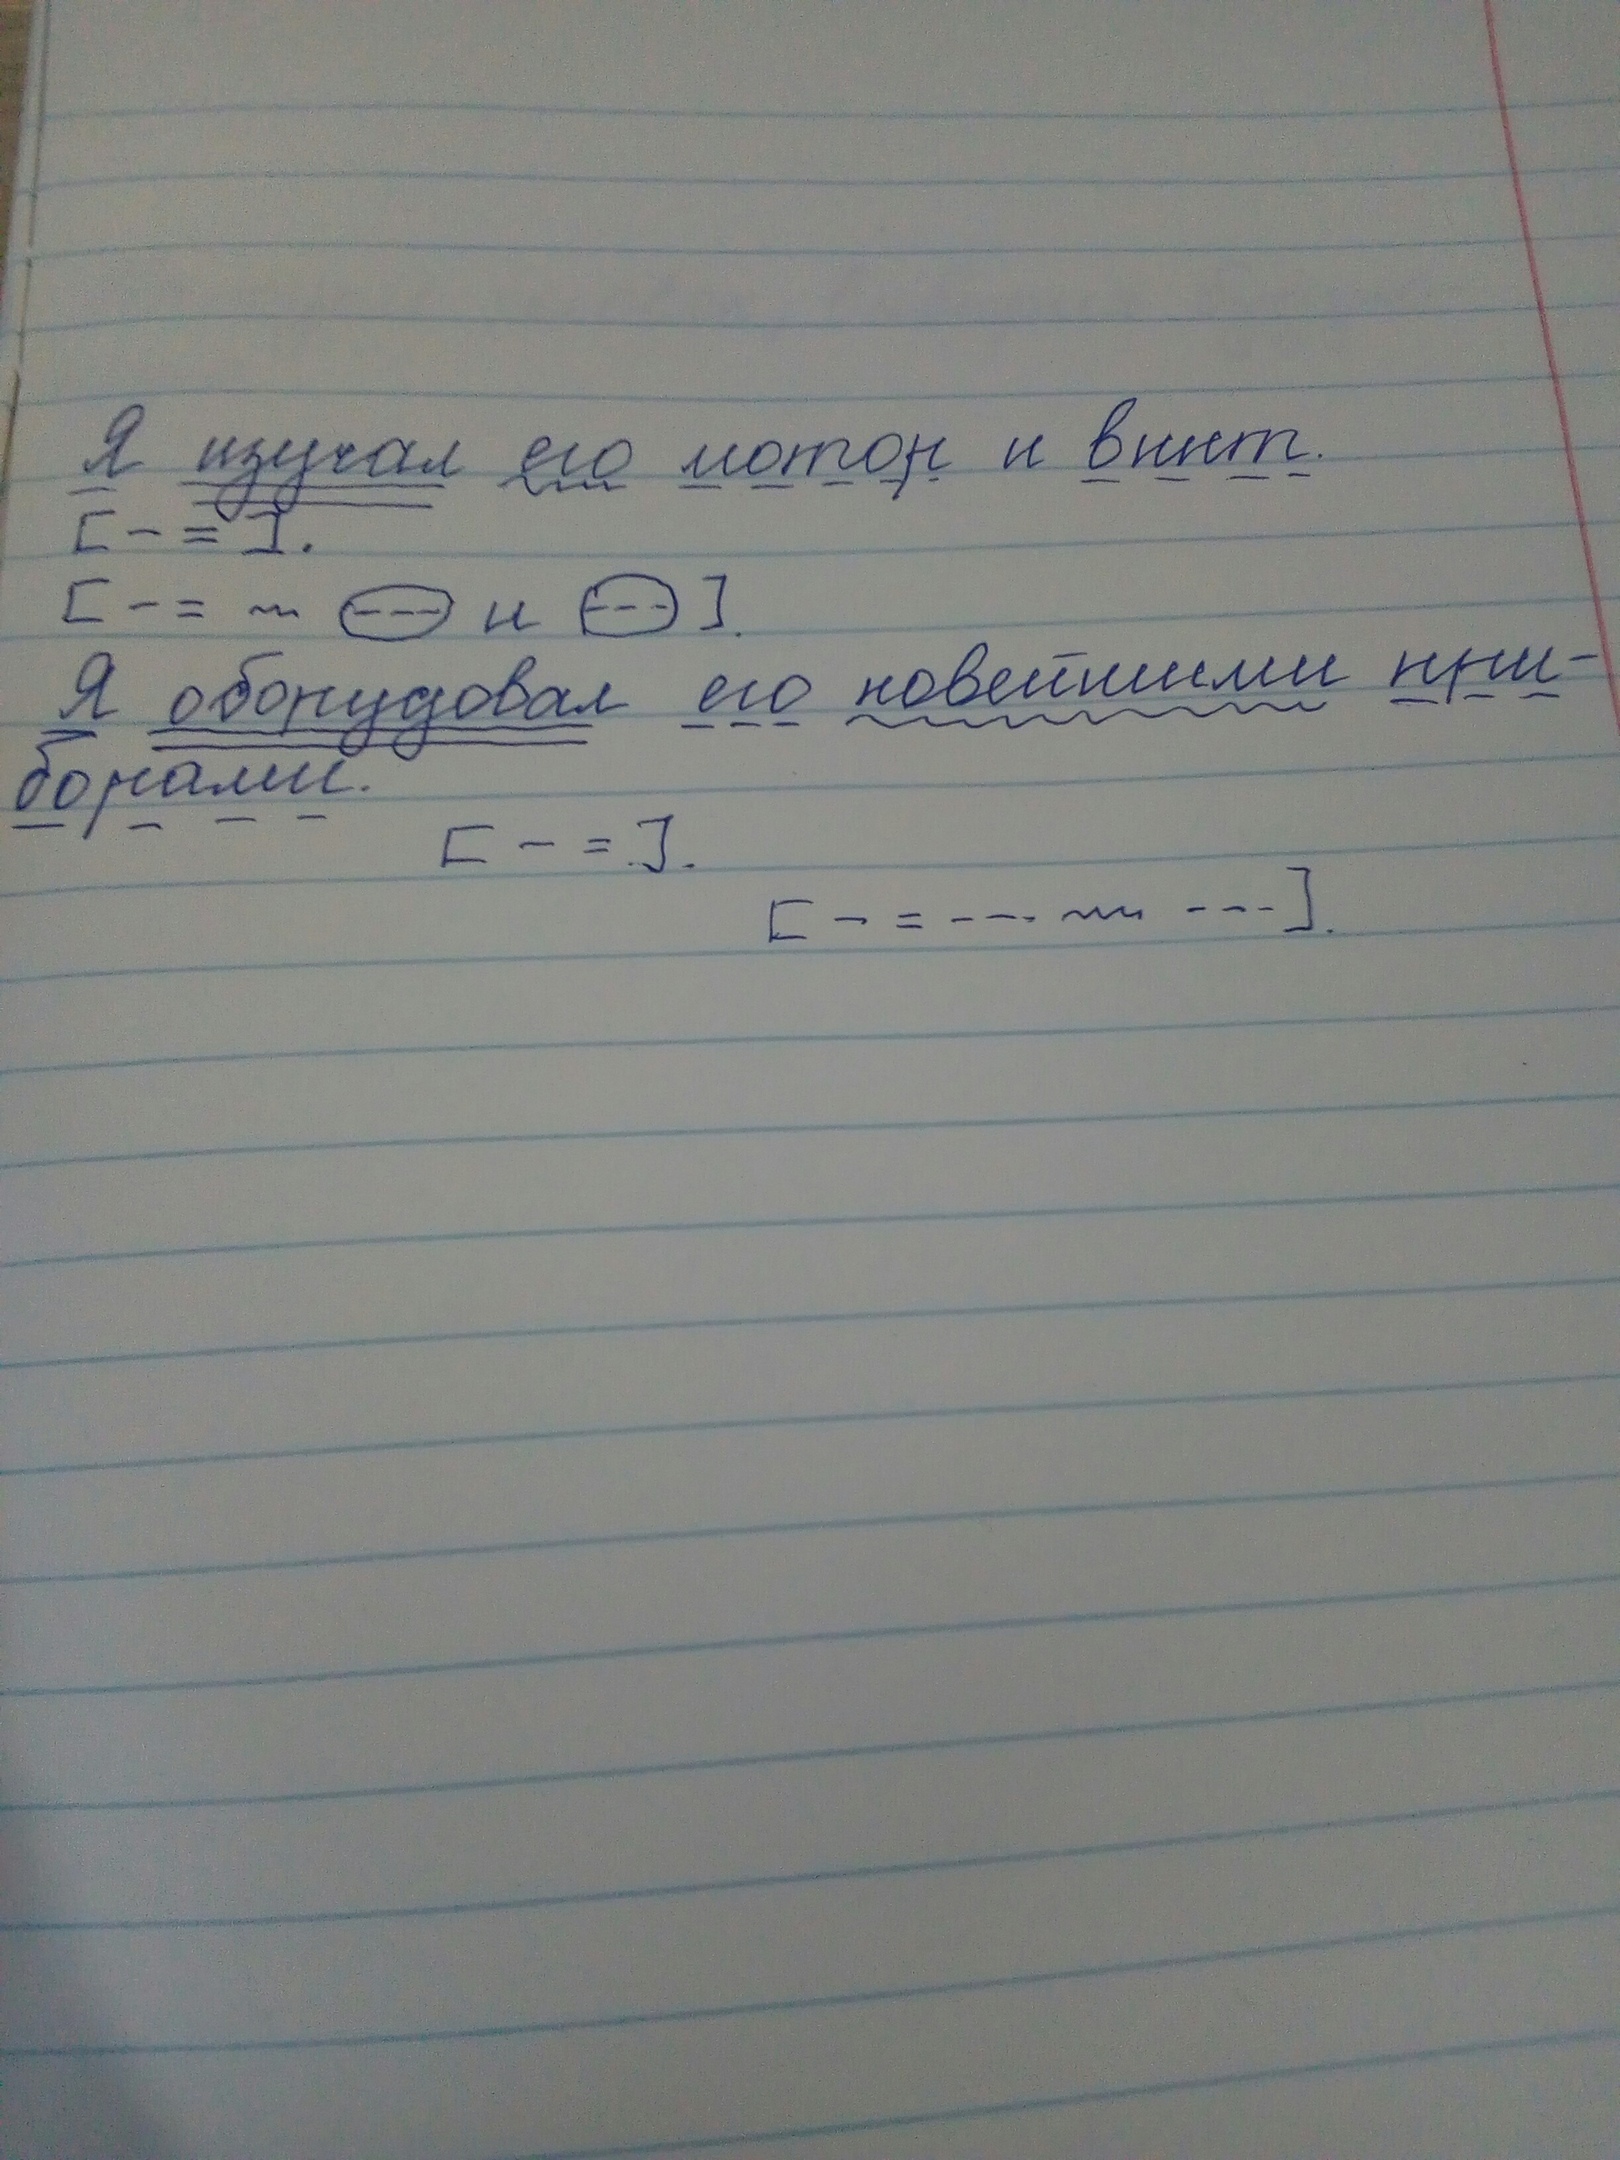 Я изучал его мотор и винт.
[ – = ].
[ – = ~ (---) и (---) ].
Я оборудовал его новейшими при-
борами.
[ – = ].
[ – = --- ~~~ --- ].